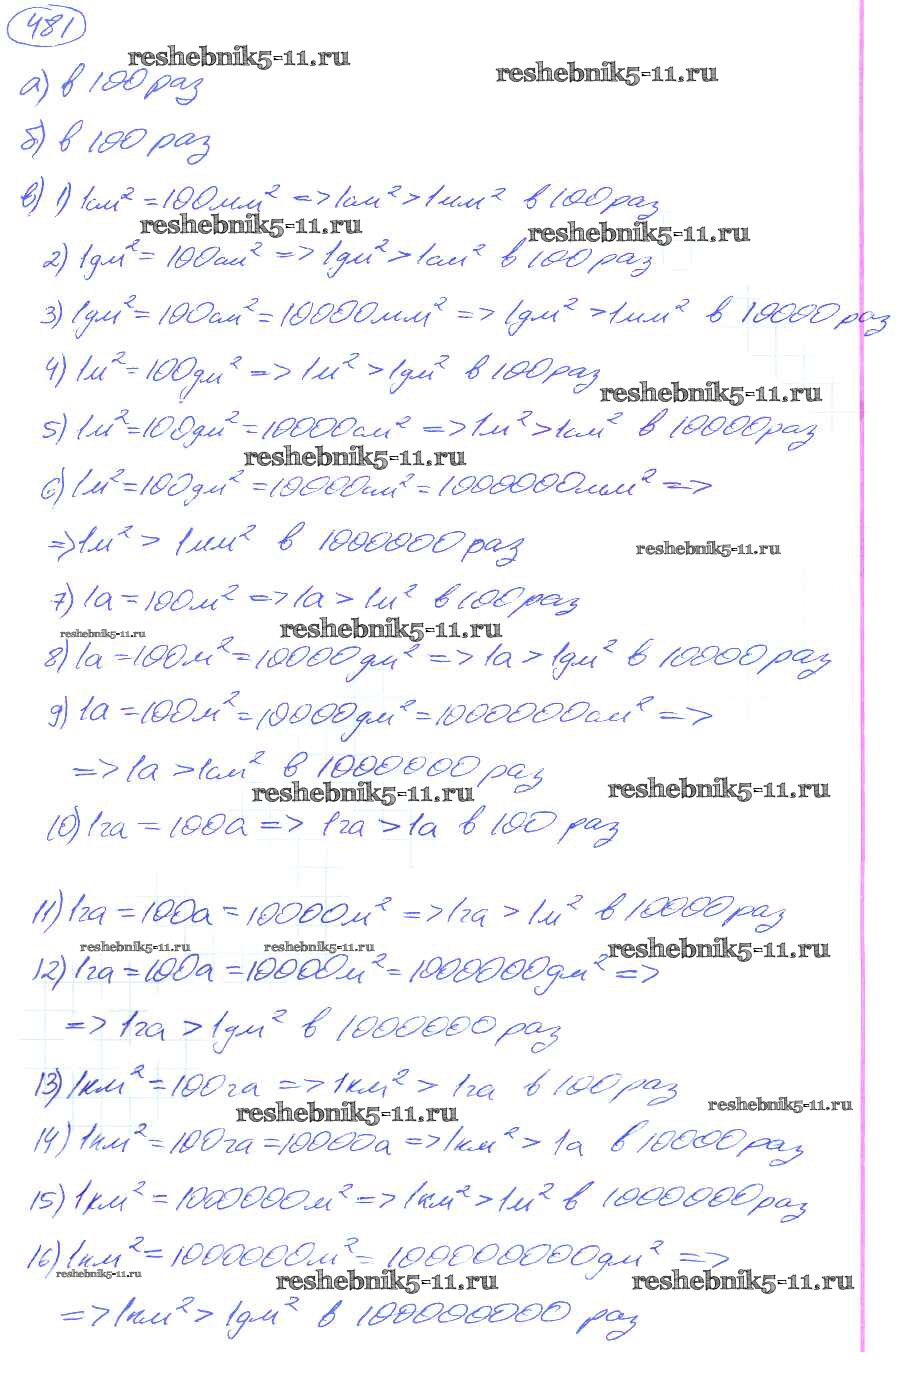 481
reshebnik5-11.ru
reshebnik5-11.ru
а) в 100 раз
б) в 100 раз
в) 1) 1см² = 100мм² => 1см² > 1мм² в 100 раз
reshebnik5-11.ru
reshebnik5-11.ru
2) 1дм² = 100см² => 1дм² > 1см² в 100 раз
3) 1дм² = 100см² = 10000мм² => 1дм² > 1мм² в 10000 раз
4) 1м² = 100дм² => 1м² > 1дм² в 100 раз
reshebnik5-11.ru
5) 1м² = 100дм² = 10000см² => 1м² > 1см² в 10000 раз
reshebnik5-11.ru
6) 1м² = 100дм² = 10000см² = 1000000мм² =>
=> 1м² > 1мм² в 1000000 раз
reshebnik5-11.ru
7) 1а = 100м² => 1а > 1м² в 100 раз
reshebnik5-11.ru
reshebnik5-11.ru
8) 1а = 100м² = 10000дм² => 1а > 1дм² в 10000 раз
9) 1а = 100м² = 10000дм² = 1000000см² =>
=> 1а > 1см² в 1000000 раз
reshebnik5-11.ru
reshebnik5-11.ru
10) 1га = 100а => 1га > 1а в 100 раз
11) 1га = 100а = 10000м² => 1га > 1м² в 10000 раз
reshebnik5-11.ru
reshebnik5-11.ru
reshebnik5-11.ru
12) 1га = 100а = 10000м² = 1000000дм² =>
=> 1га > 1дм² в 1000000 раз
13) 1км² = 100га => 1км² > 1га в 100 раз
reshebnik5-11.ru
reshebnik5-11.ru
14) 1км² = 100га = 10000а => 1км² > 1а в 10000 раз
15) 1км² = 1000000м² => 1км² > 1м² в 1000000 раз
16) 1км² = 1000000м² = 100000000дм² =>
reshebnik5-11.ru
reshebnik5-11.ru
reshebnik5-11.ru
=> 1км² > 1дм² в 100000000 раз